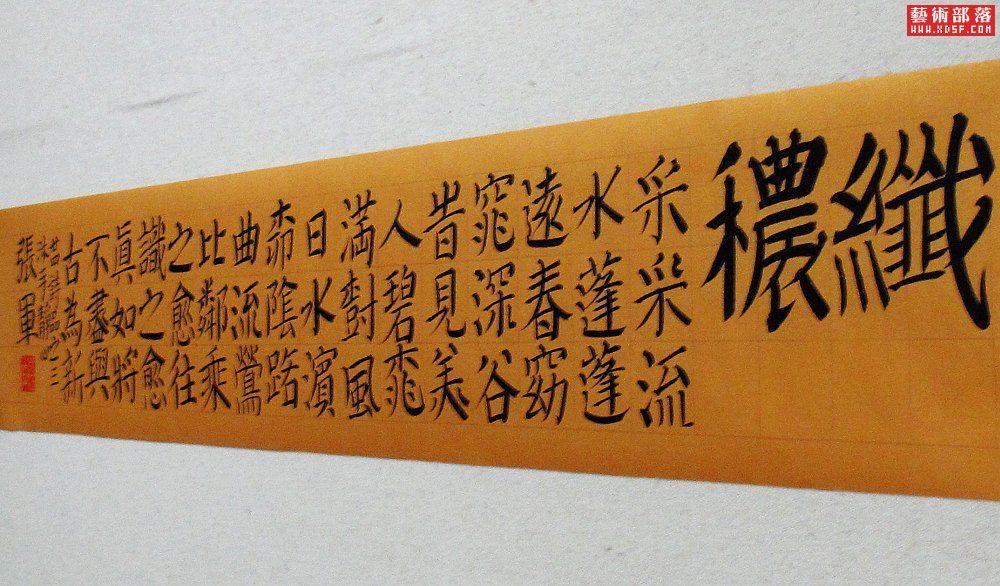 藝術部落
WWW.XDSF.COM
纖穠
采采流
水蓬蓬
遠春窈
窕深谷
旹見美
人碧桃
滿樹風
日水濱
桺陰路
曲流鶯
比鄰乘
之愈往
識之愈
眞如將
不盡與
古為新
張軍